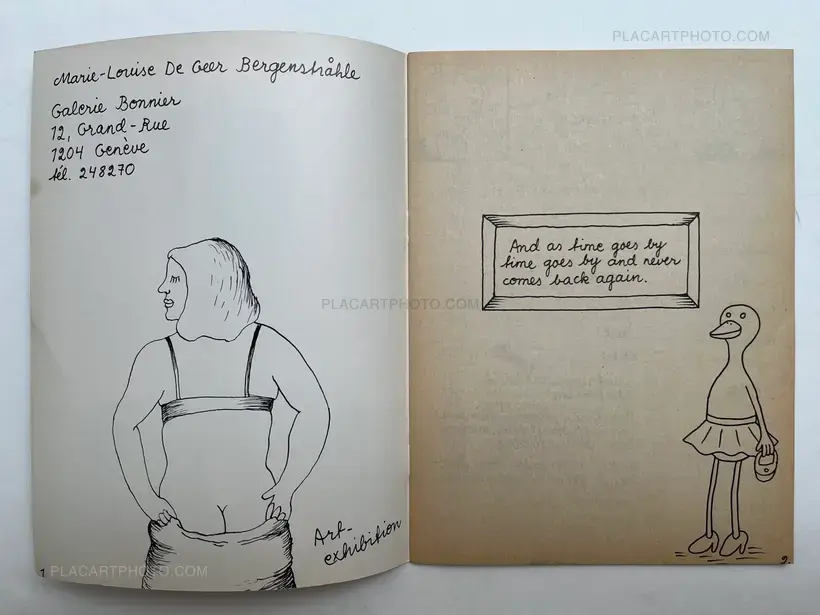 PLACARTPHOTO.COM
Marie-Louise De Geer Bergenstråhle
Galerie Bonnier
12, Grand-Rue
1204 Genève
tél. 248270
Art-
exhibition
1
PLACARTPHOTO.COM
And as time goes by
time goes by and never
comes back again.
PLACARTPHOTO.COM
2.